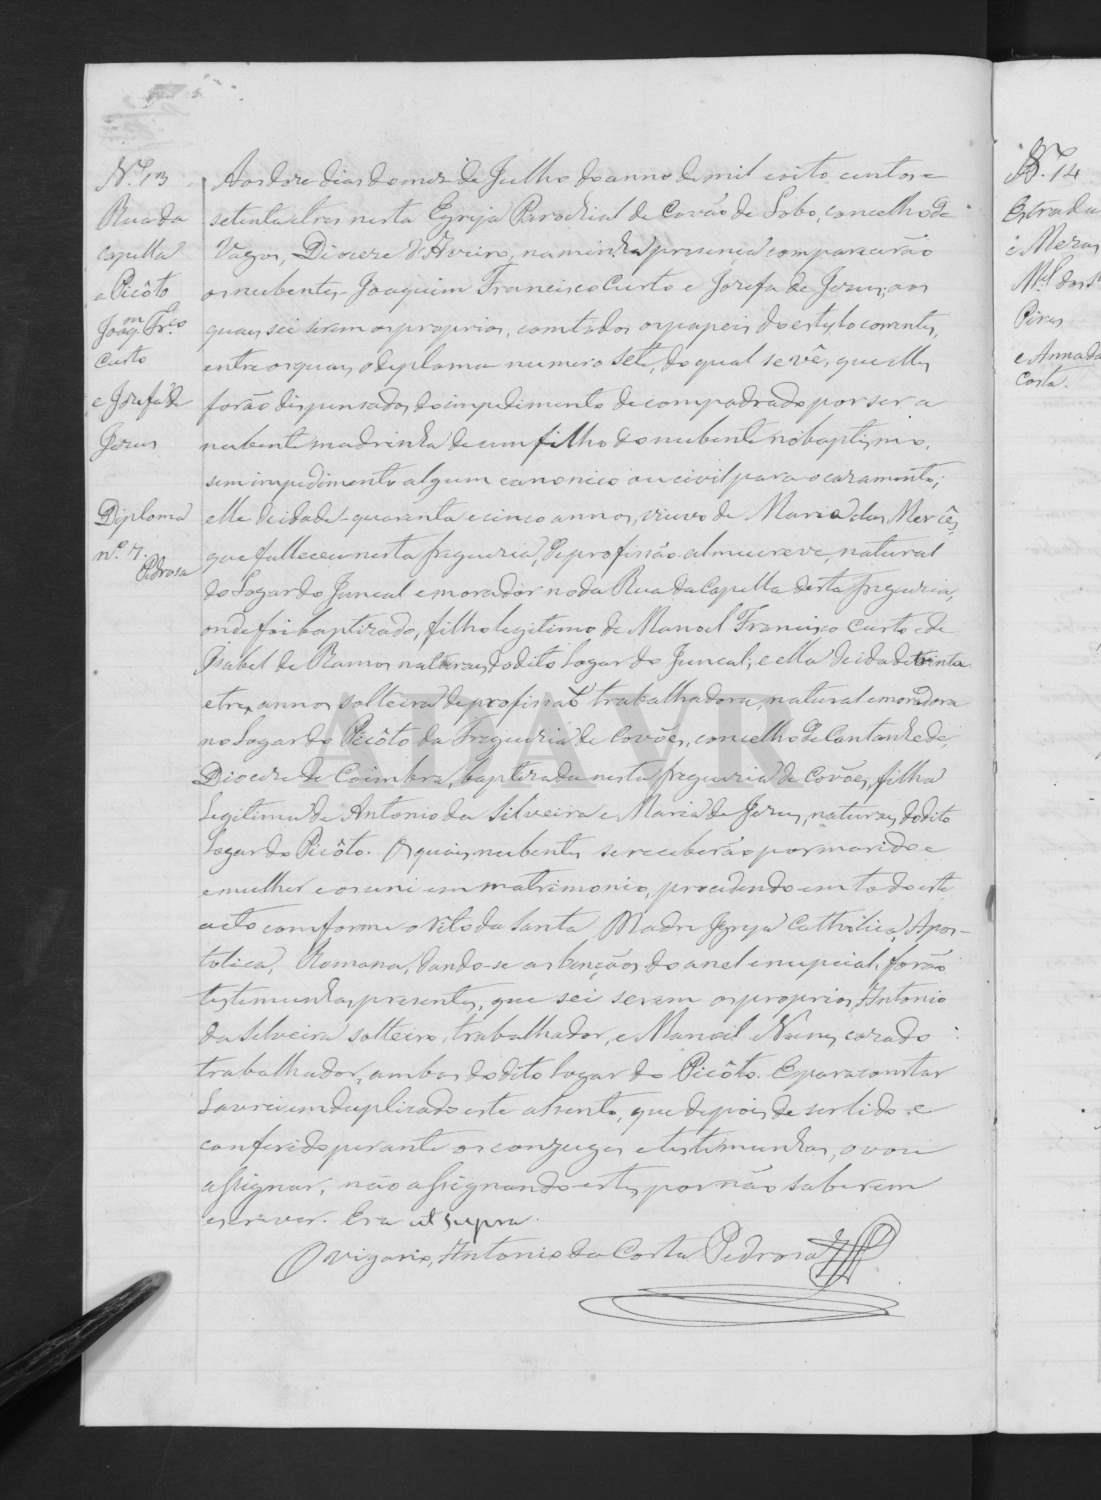 N.º 13
Rua da
Capella
e Picôto
Joaqm Frco
Curto
e Josefa de
Jesus
Diploma
nº 7.
Pedrosa
Aos doze dias do mez de Julho do anno de mil oito centos e
setenta e tres nesta Egreja Parochial de Covão do Lobo, concelho de
Vagos, Diocese d'Aveiro, na minha presença compareceráo
os nubentes Joaquim Francisco Curto e Josefa de Jesus, aos
quaes sei serem os proprios, com todos os papeis do estylo correntes,
entre os quaes o deploma numero sete, do qual se vê, que elles
forão dispensados do impedimento de compadrado por ser a
nubente madrinha de um filho do nubente no baptismo,
sem impedimento algum canonico ou civil para o casamento;
elle de idade quarenta e cinco annos, viuvo de Maria das Mercês,
que falleceu nesta freguezia, de profissão almucreve, natural
do Logar do Juncal e morador no da Rua da Capella desta freguezia,
onde foi baptizado, filho legitimo de Manoel Francisco Curto e de
Isabel de Ramos naturaes do dito Logar do Juncal; e ella de idade trinta
e tres annos solteira de profissão trabalhadora, natural e moradora
no Logar do Picôto da Freguezia de Covões, concelho de Cantanhede,
Diocese de Coimbra, baptizada nesta freguezia de Covões, filha
Legitima de Antonio da Silveira e Maria de Jesus, naturaes do dito
Logar do Picôto. Os quaes nubentes se receberão por marido e
e mulher e os uni em matrimonio, procedendo em todo este
acto conforme o rito da Santa Madre Igreja Catholica, Apos-
tolica, Romana, dando-se as bençãos do anel e nupcial. forão
testemunhas presentes, que sei serem os proprios, Antonio
da Silveira solteiro, trabalhador, e Manoel Nunes, casado
trabalhador, ambos do dito Logar do Picôto. E para constar
Lavrei em duplicado este assento, que depois de ser lido e
conferido perante os conjuges e testemunhas, o vou
assignar, não assignando estes por não saberem
escrever. Era ut supra.
O vigario, Antonio da Costa Pedrosa
N.º 14
Estrada
e Mezas
Mel dos
Pires
e Anna da
Costa.
ADAVR